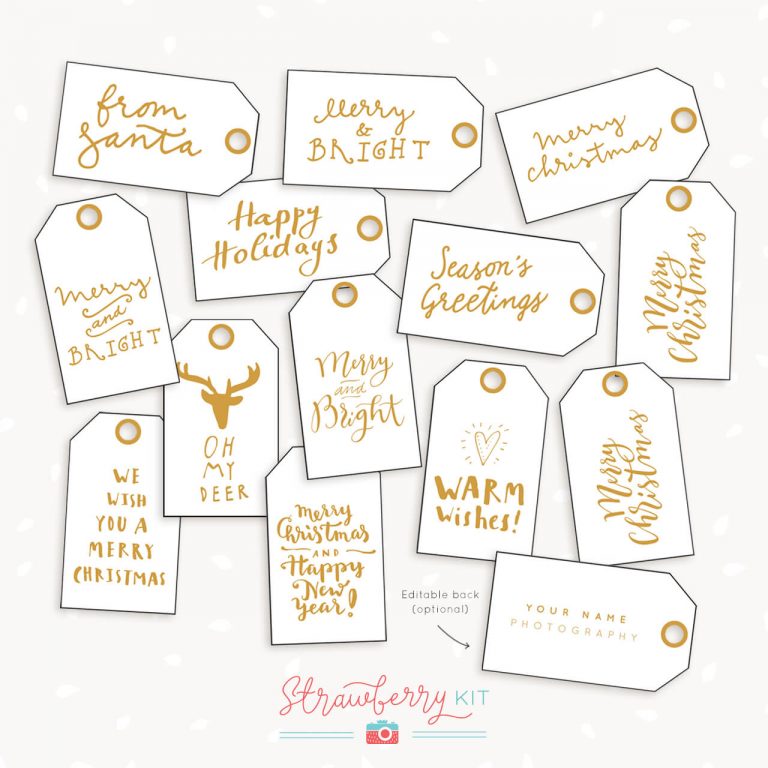 from
Santa
Merry
&
BRIGHT
Merry
Christmas
Happy
Holidays
Season's
Greetings
Merry
Christmas
Merry
and
BRIGHT
OH
MY
DEER
Merry
and
Bright
WARM
Wishes!
Merry
Christmas
WE
WISH
YOU A
MERRY
CHRISTMAS
Merry
Christmas
AND
Happy
New
Year!
Editable back
(optional)
YOUR NAME
PHOTOGRAPHY
Strawberry KIT